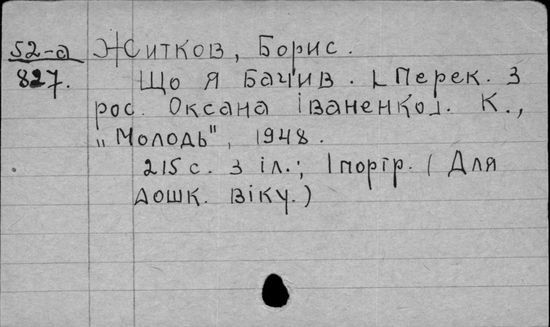 52-а Житков, Борис.
827. Що я бачив. [Перек. з
рос. Оксана Іваненко]. К.,
„Молодь", 1948.
215 с. з іл.; 1 портр. (Для
дошк. віку.)